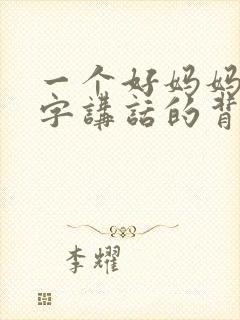 一个好妈妈
字講話的背
李耀